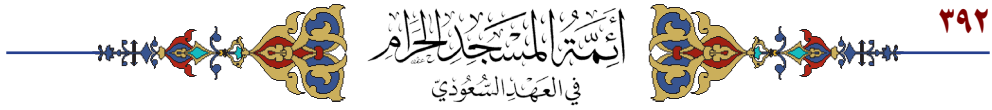 ٣٩٢
أَئِمَّةُ المَسْجِدِ الحَرَامِ
في العَهْدِ السُّعُودِيّ